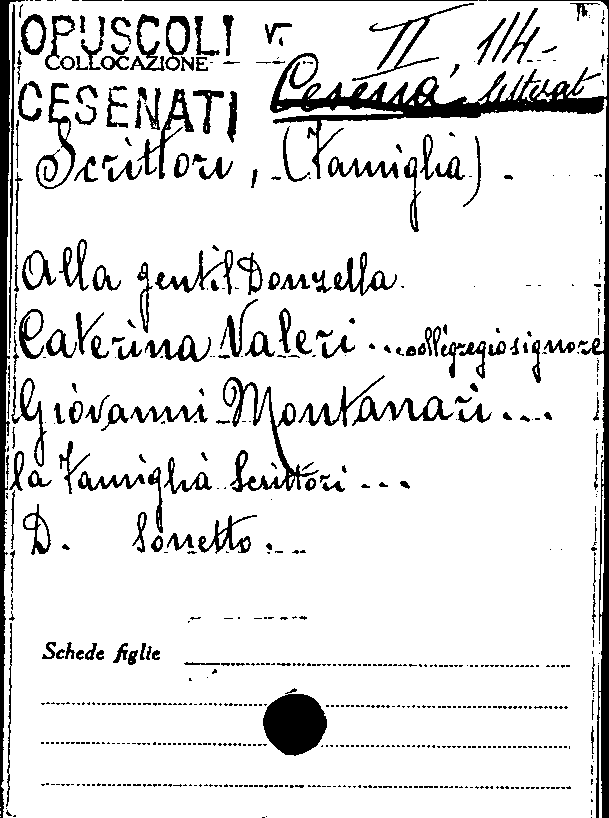 OPUSCOLI v. II, 114-
COLLOCAZIONE
CESENATI Cesena letterat
Scrittori, (Famiglia).
Alla gentil Donzella
Caterina Valeri ... coll'egregio signore
Giovanni Montanari ...
la Famiglia Scrittori ...
D. Sonetto.
Schede figlie